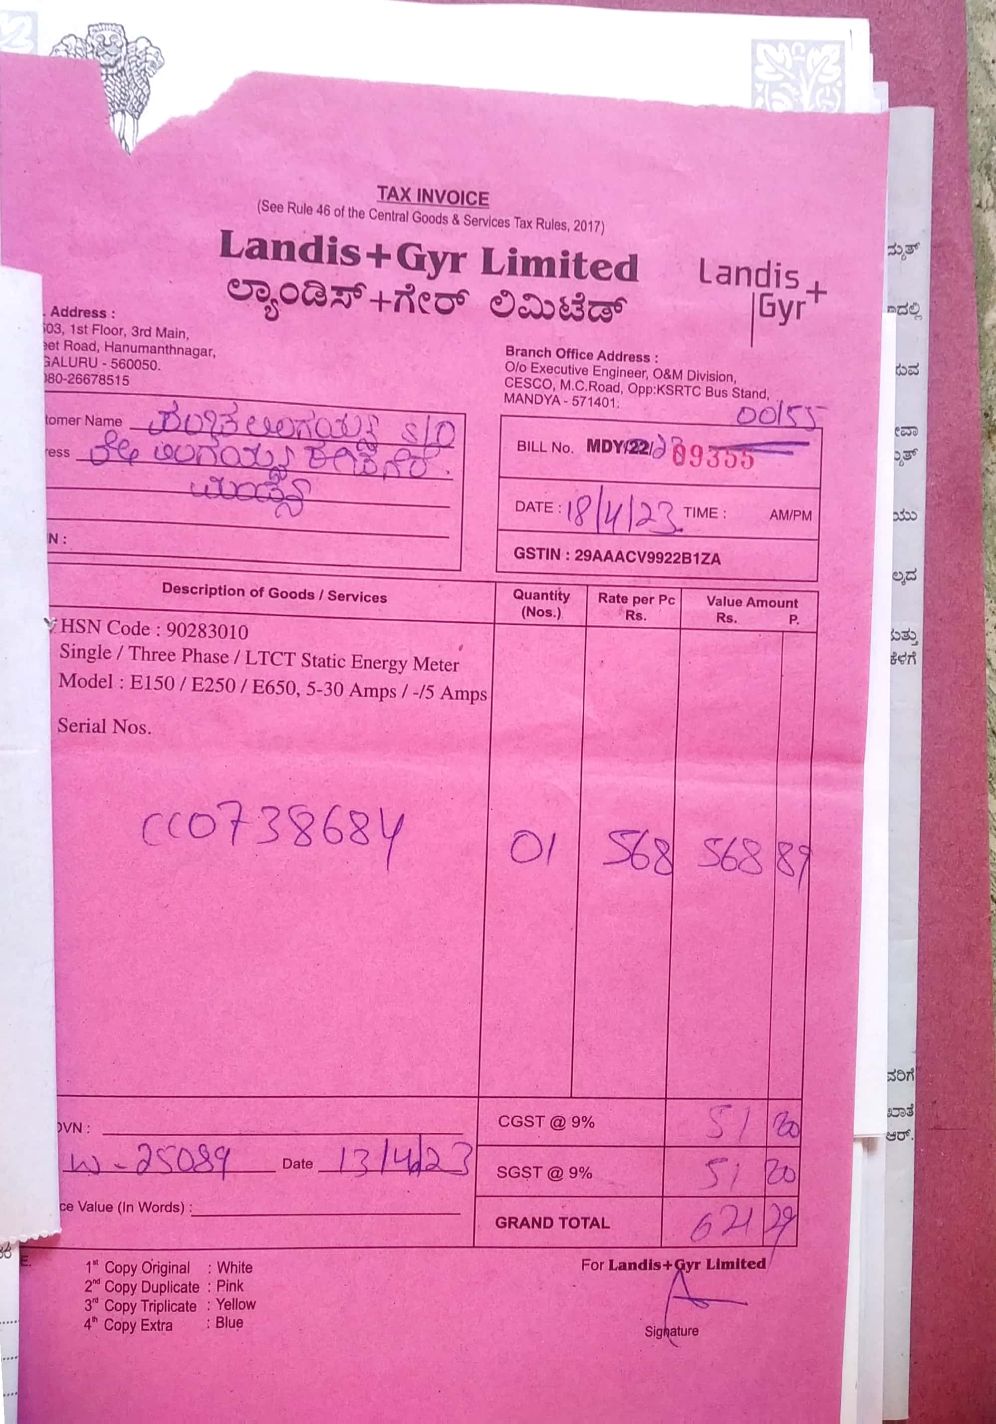 TAX INVOICE
(See Rule 46 of the Central Goods & Services Tax Rules, 2017)
Landis+Gyr Limited
ಲ್ಯಾಂಡಿಸ್+ಗೇರ್ ಲಿಮಿಟೆಡ್
Landis+
Gyr
. Address :
503, 1st Floor, 3rd Main,
eet Road, Hanumanthnagar,
GALURU - 560050.
080-26678515
Branch Office Address :
O/o Executive Engineer, O&M Division,
CESCO, M.C.Road, Opp:KSRTC Bus Stand,
MANDYA - 571401.
tomer Name S/O
ress
ಮಂಡ್ಯ
N :
00155
BILL No. MDY/22/23 09355
DATE : 18/4/23 TIME : AM/PM
GSTIN : 29AAACV9922B1ZA
Description of Goods / Services Quantity (Nos.) Rate per Pc Rs. Value Amount Rs. P.
HSN Code : 90283010
Single / Three Phase / LTCT Static Energy Meter
Model : E150 / E250 / E650, 5-30 Amps / -/5 Amps
Serial Nos.
CC0738684 01 568 568 89
OVN :
CGST @ 9% 51 20
W-25089 Date 13/4/23
SGST @ 9% 51 20
ce Value (In Words) :
GRAND TOTAL 671 29
1st Copy Original : White
2nd Copy Duplicate : Pink
3rd Copy Triplicate : Yellow
4th Copy Extra : Blue
For Landis+Gyr Limited
Signature